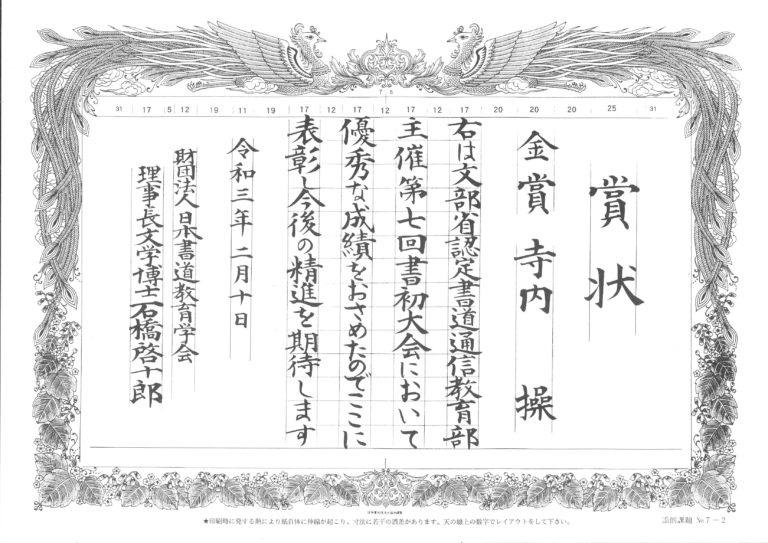 賞状
金賞 寺内 操
右は文部省認定書道通信教育部
主催第七回書初大会において
優秀な成績をおさめたのでここに
表彰し今後の精進を期待します
令和三年 二月十日
財団法人日本書道教育学会
理事長文学博士石橋啓十郎
31 17 5 12 19 11 19 17 12 17 12 17 12 17 20 20 20 25 31
7 5
★印刷時に発する熱により紙自体に伸縮が起こり、寸法に若干の誤差があります。天の線上の数字でレイアウトをして下さい。
添削課題 №7－2